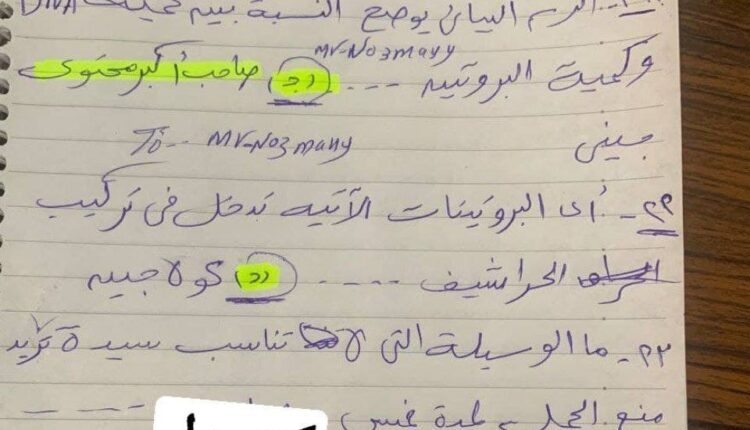 الرسم البياني يوضح النسبة بين كمية DNA
Mr-No3many
وكمية البروتين .... (د) صاحب أكبر محتوى
جيني
To-- Mr-No3many
٢٩- أى البروتينات الآتية تدخل فى تركيب
الحراشيف ---- (د) كولاجين
٢٣- ما الوسيلة التى لا تناسب سيدة تريد
منع الحمل لمدة خمس ----